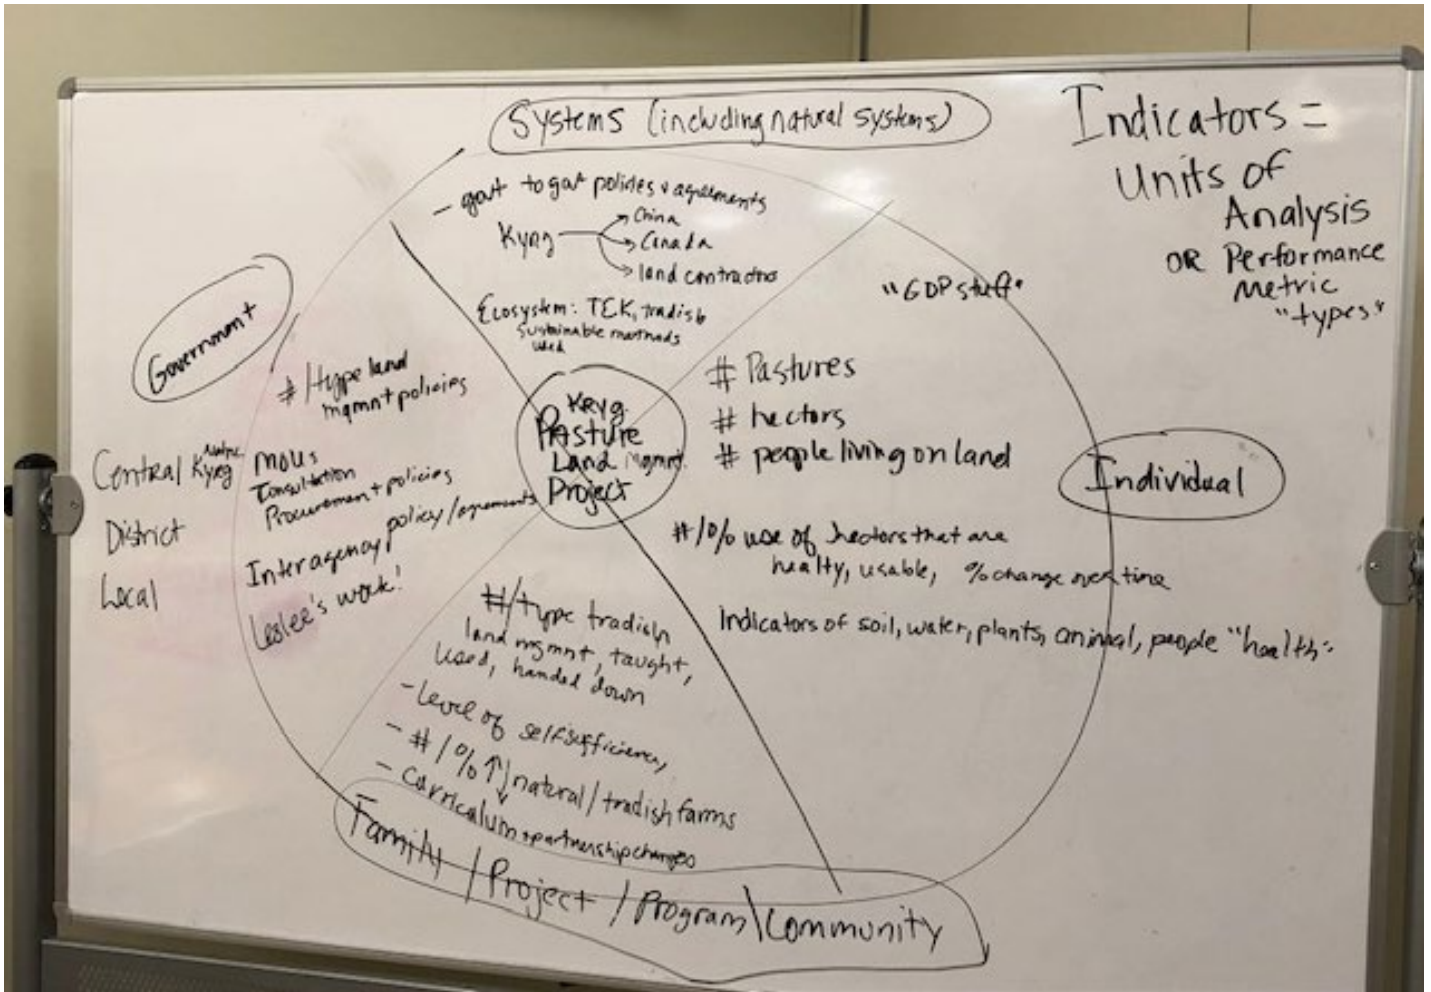 Systems (including natural systems)
- govt to govt policies & agreements
Kyrg
China
Canada
land contractors
Ecosystem: TEK, tradish
Sustainable methods
used
Indicators =
Units of
Analysis
OR Performance
Metric
"types"
Government
#/type land
mgmnt policies
Central Kyrg
District
Local
MOUs
Consultation
Procurement policies
Interagency policy/agreements
Leslee's work!
Kryg.
Pasture
Land Mgmnt.
Project
"GDP stuff"
# Pastures
# hectors
# people living on land
Individual
#/% use of hectors that are
healty, usable, % change over time
Indicators of soil, water, plants, animal, people "health"
#/type tradish
land mgmnt, taught,
used, handed down
- Level of selfsufficiency
- #/% ↑↓ natural/tradish farms
- Curriculum + partnership changes
Family / Project / Program \ Community